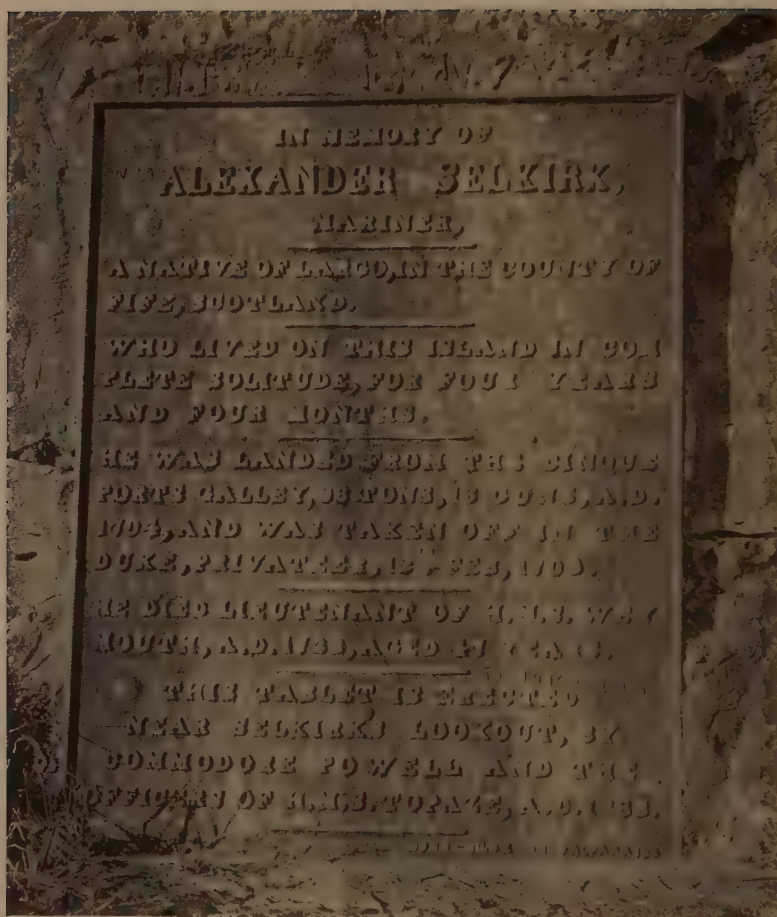 IN MEMORY OF
ALEXANDER SELKIRK,
MARINER,
A NATIVE OF LARGO, IN THE COUNTY OF
FIFE, SCOTLAND.
WHO LIVED ON THIS ISLAND IN COM
PLETE SOLITUDE, FOR FOUR YEARS
AND FOUR MONTHS.
HE WAS LANDED FROM THE CINQUE
PORTS GALLEY, 96 TONS, 18 GUNS, A.D.
1704, AND WAS TAKEN OFF IN THE
DUKE, PRIVATEER, 12TH FEB, 1709.
HE DIED LIEUTENANT OF H.M.S. WEY
MOUTH, A.D. AGED 47 YEARS.
THIS TABLET IS ERECTED
NEAR SELKIRK'S LOOKOUT, BY
COMMODORE POWELL AND THE
OFFICERS OF H.M.S. TOPAZE, A.D.